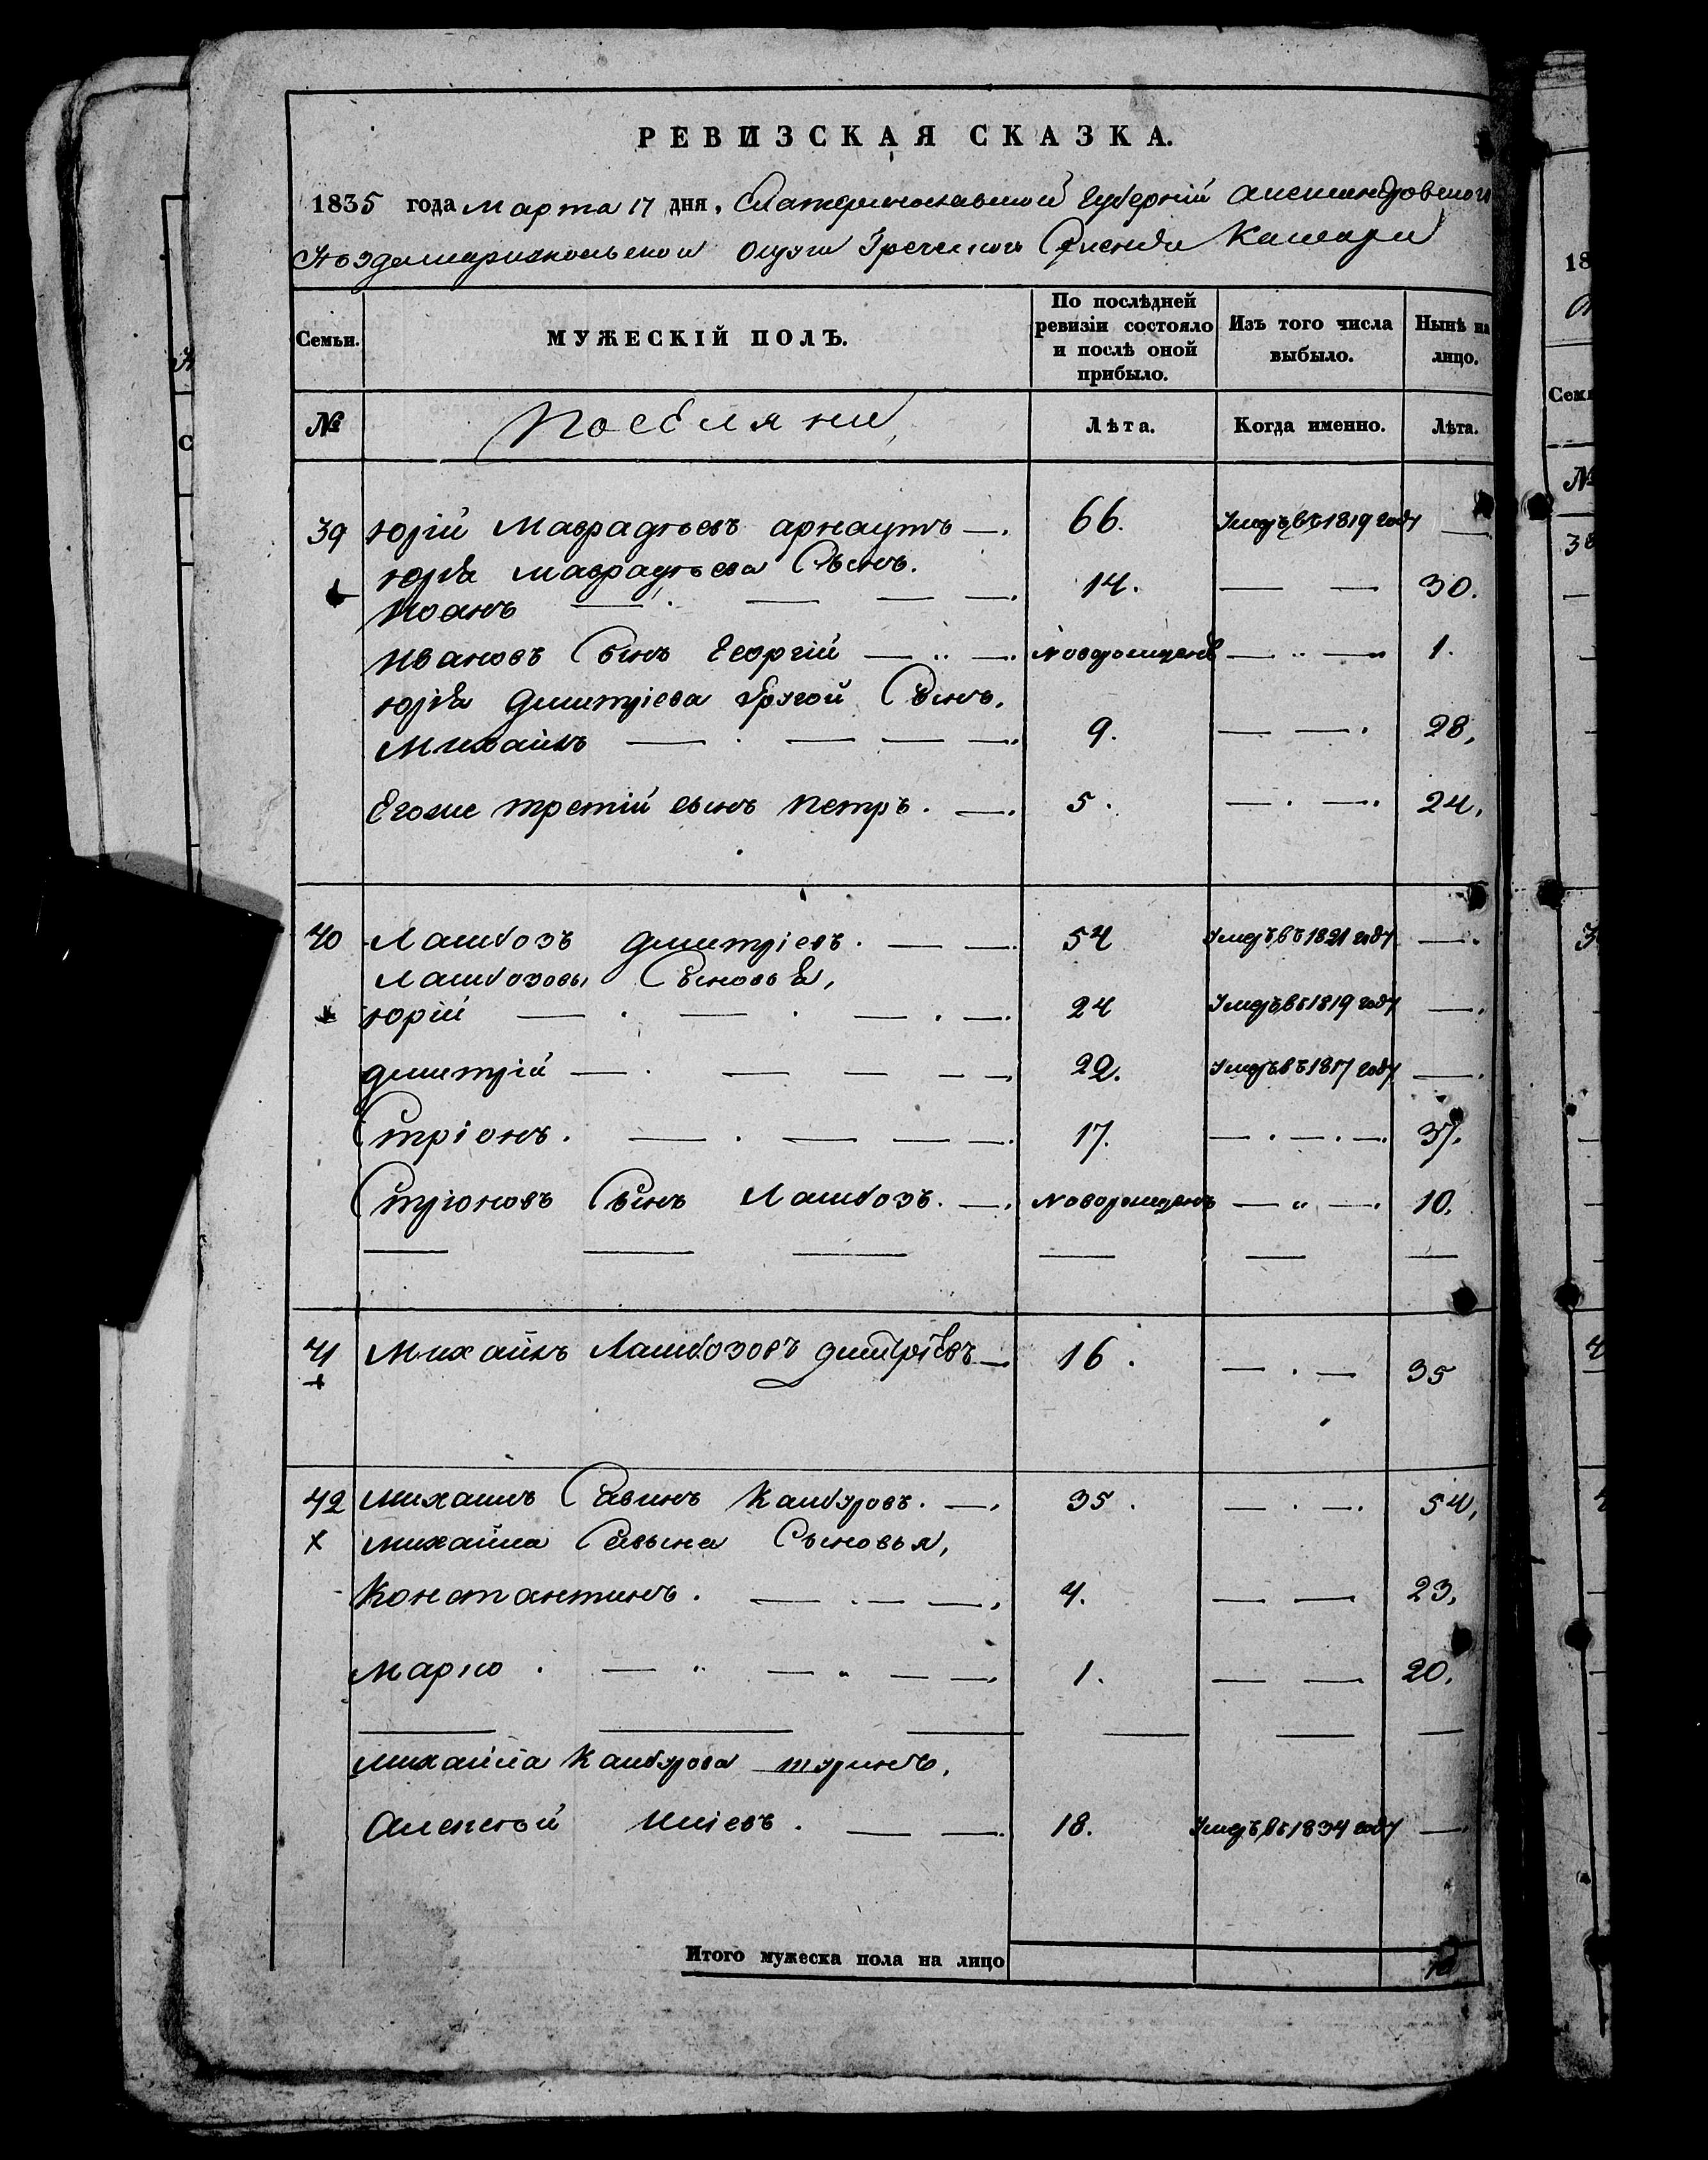 РЕВИЗСКАЯ СКАЗКА.
1835 года Марта 17 дня, Екатеринославской Губерніи Александровского
Уезда мариупольского округа Греческого Селенія
Семьи. МУЖЕСКІЙ ПОЛЪ. По послѣдней ревизіи состояло и послѣ оной прибыло. Изъ того числа выбыло. Нынѣ на лицо.
№ Поселяне, Лѣта. Когда именно. Лѣта.
39 Юрій арнаутъ —. 66. Умеръ въ 1819 году —
Юрія Сынъ.
Иоанъ — . — — —. 14. — — 30.
Ивановъ Сынъ Георгій — .. —. Новорожденъ — .. — 1.
Юрія Дмитріева другой Сынъ.
Михайлъ — . — — —. 9. — —. 28,
Егоже третій сынъ Петръ. —. 5. — . —. 24,
40 Ламбозъ Дмитріевъ. — —. 54 Умеръ въ 1821 году —.
Ламбозовы Сыновья,
Юрій — . — . — . —. 24 Умеръ въ 1819 году —.
Дмитрій — . — — — —. 22. Умеръ въ 1817 году —.
Стріонъ. — . — — —. 17. — . — . —. 37.
Стріоновъ Сынъ Ламбозъ. —. Новорожденъ — „ —. 10.
41 Михайлъ Ламбозовъ Дмитріевъ — 16. — . — 35
42 Михаилъ Савинъ Камбуровъ. —. 35. — . —. 54,
х Михайла Савына Сыновья,
Константинъ. — . — —, 4. — — 23,
Марко. — „ — „ — —, 1. — — 20,
Михайла Камбурова шуринъ,
Алексѣй Иліевъ. — —. 18. Умеръ въ 1834 году —.
Итого мужеска пола на лицо
18
Семьи
№